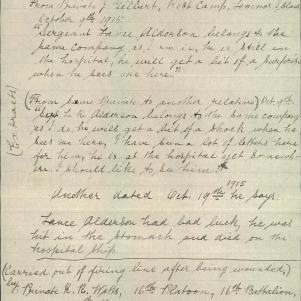 From Private J. Gilbert, Rest Camp, Lemnos Island
October 9th 1915
"Sergeant Lance Alderson belongs to the
same company as I am in, he is still in
the hospital, he will get a bit of a surprise
when he sees me here."
(Extracts)
(From same Private to another relative) Oct. 9th
"Sgt L. R. Alderson belongs to the same company
as I do, he will get a bit of a shock when he
sees me here, I have seen a lot of letters here
for him, he is at the hospital yet somewhere
I should like to see him."
Another dated Oct. 19th 1915 he says:
Lance Alderson had bad luck, he was
hit in the stomach and died on the
hospital ship.
(Carried out of firing line after being wounded,
by Private K. R. Watts, 16th Platoon, 16th Battalion,